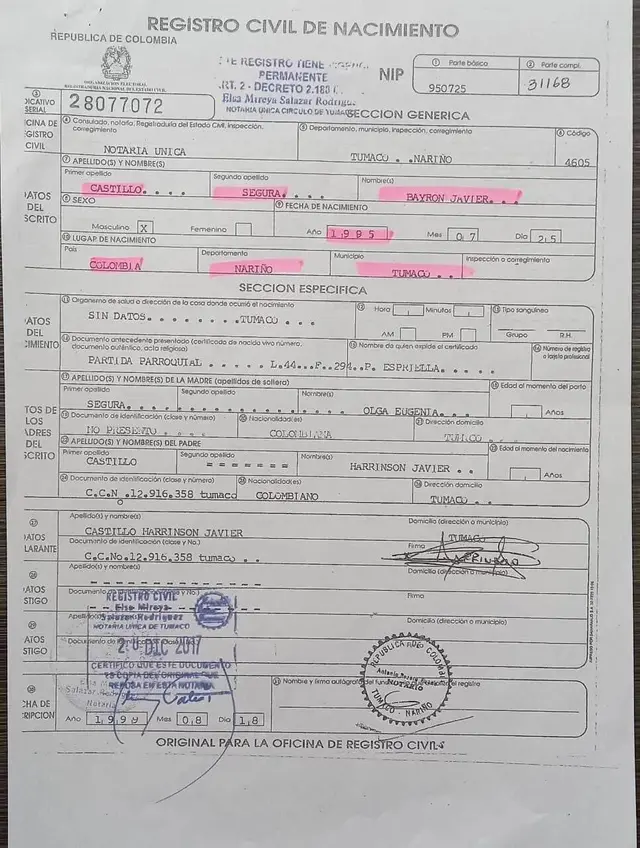 REGISTRO CIVIL DE NACIMIENTO
REPUBLICA DE COLOMBIA
ORGANIZACION ELECTORAL
REGISTRADURIA NACIONAL DEL ESTADO CIVIL
REGISTRO TIENE
PERMANENTE
RT. 2 - DECRETO 2.180
Elsa Mireya Salazar Rodrigu
NOTARIA UNICA CIRCULO DE TUMA
NIP
1 Parte básica
950725
2 Parte compl.
31168
3
DICATIVO
SERIAL
28077072
SECCION GENERICA
CINA DE
GISTRO
CIVIL
4 Consulado, notaría, Registraduría del Estado Civil, inspección, corregimiento
NOTARIA UNICA
5 Departamento, municipio, inspección, corregimiento
TUMACO . .NARIÑO
6 Código
4605
7 APELLIDO(S) Y NOMBRE(S)
ATOS
DEL
SCRITO
Primer apellido
CASTILLO. . . .
Segundo apellido
SEGURA. . . .
Nombre(s)
BAYRON JAVIER. . .
8 SEXO
Masculino X
Femenino
9 FECHA DE NACIMIENTO
Año 1 9 9 5
Mes 0 7
Día 2 5
10 LUGAR DE NACIMIENTO
País
COLOMBIA
Departamento
NARIÑO
Municipio
TUMACO . .
Inspección o corregimiento
SECCION ESPECIFICA
ATOS
DEL
CIMIENTO
11 Organismo de salud o dirección de la casa donde ocurrió el nacimiento
SIN DATOS. . . . . . . .TUMACO . . .
12 Hora
Minutos
AM
PM
13 Tipo sanguíneo
Grupo
R.H.
14 Documento antecedente presentado (certificado de nacido vivo número, documento auténtico, acta religiosa)
PARTIDA PARROQUIAL . . . . . L.44...F..294..P. ESPRIELLA. . . . .
15 Nombre de quien expide el certificado
16 Número de registro o tarjeta profesional
17 APELLIDO(S) Y NOMBRES DE LA MADRE (apellidos de soltera)
TOS DE
LOS
ADRES
DEL
SCRITO
Primer apellido
SEGURA. . . . . . . . .
Segundo apellido
Nombre(s)
OLGA EUGENIA. . .
18 Edad al momento del parto
Años
19 Documento de identificación (clase y número)
NO PRESENTO . . . .
20 Nacionalidad(es)
COLOMBIANA
21 Dirección domicilio
TUMACO . .
22 APELLIDO(S) Y NOMBRES DEL PADRE
Primer apellido
CASTILLO
Segundo apellido
= = = = = = =
Nombre(s)
HARRINSON JAVIER . .
23 Edad al momento del nacimiento
Años
24 Documento de identificación (clase y número)
C.C.No .12.916.358 tumaco
25 Nacionalidad(es)
COLOMBIANO
26 Dirección domicilio
TUMACO. . .
27
ATOS
LARANTE
Apellido(s) y nombre(s)
CASTILLO HARRINSON JAVIER
Domicilio (dirección o municipio)
TUMACO
Documento de identificación (clase y No.)
C.C.No.12.916.358 tumaco . .
Firma
28
ATOS
STIGO
Apellido(s) y nombre(s)
Domicilio (dirección o municipio)
Firma
REGISTRO CIVIL
Elsa Mireya
Salazar Rodriguez
NOTARIA UNICA DE TUMACO
29
ATOS
STIGO
Domicilio (dirección o municipio)
20 DIC 2017
CERTIFICO QUE ESTE DOCUMENTO
ES COPIA DEL ORIGINAL QUE
REPOSA EN ESTA NOTARIA
REPUBLICA DE COLOMBIA
NOTARIO
TUMACO - NARIÑO
30
CHA DE
RIPCION
Año 1 9 9 9
Mes 0 8
Día 1 8
31 Nombre y firma autógrafa del funcionario el registro
ORIGINAL PARA LA OFICINA DE REGISTRO CIVIL